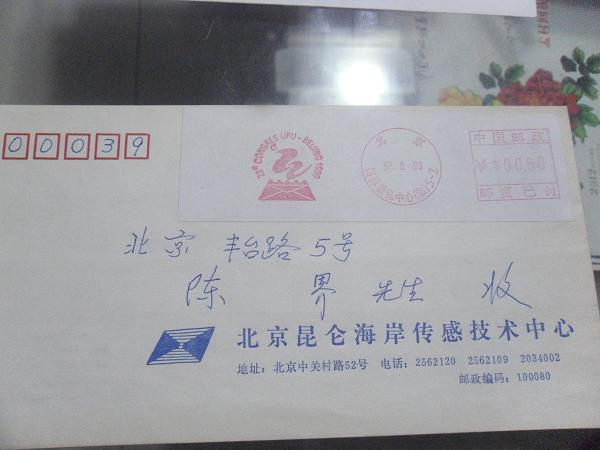 000039
22e CONGRES UPU-BEIJING 1999
北 京
中国邮政
¥ 00.60
邮资已付
北京 丰台路 5号
陈 界 先生 收
北京昆仑海岸传感技术中心
地址：北京中关村路52号 电话：2562120 2562109 2034002
邮政编码：100080